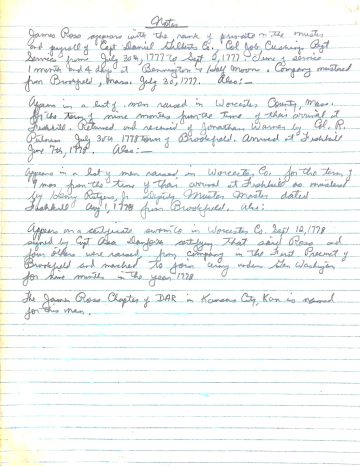 Notes
James Ross appears with the rank of private on the muster
and payroll of Capt Daniel Gilbert's Co., Col. Job. Cushing Regt
Service from July 30th, 1777 to Sept 2, 1777. Time of service
1 month and 4 days at Bennington & Half Moon. Company mustered
from Brookfield, Mass. July 30, 1777. Also:—
Again in a list of men raised in Worcester County, Mass.
for the term of nine months from the time of their arrival at
Fishkill. Returned and received of Jonathan Warner by Col. R.
Putnam July 30th 1778 town of Brookfield. Arrived at Fishkill
June 7th, 1778. Also:—
Appears in a list of men raised in Worcester Co. for the term of
9 mos from the time of their arrival at Fishkill as mustered
by Henry Rutgers Jr. Deputy Muster Master dated
Fishkill Aug 1, 1778 from Brookfield. Also:
Appears on a certificate sworn to in Worcester Co. Sept 12, 1778
signed by Capt Asa Danforth certifying that said Ross and
four others were raised from company in the First Precinct of
Brookfield and marched to join army under Gen Washington
for nine months in the year 1778.
The James Ross Chapter of DAR in Kansas City, Kan is named
for this man.